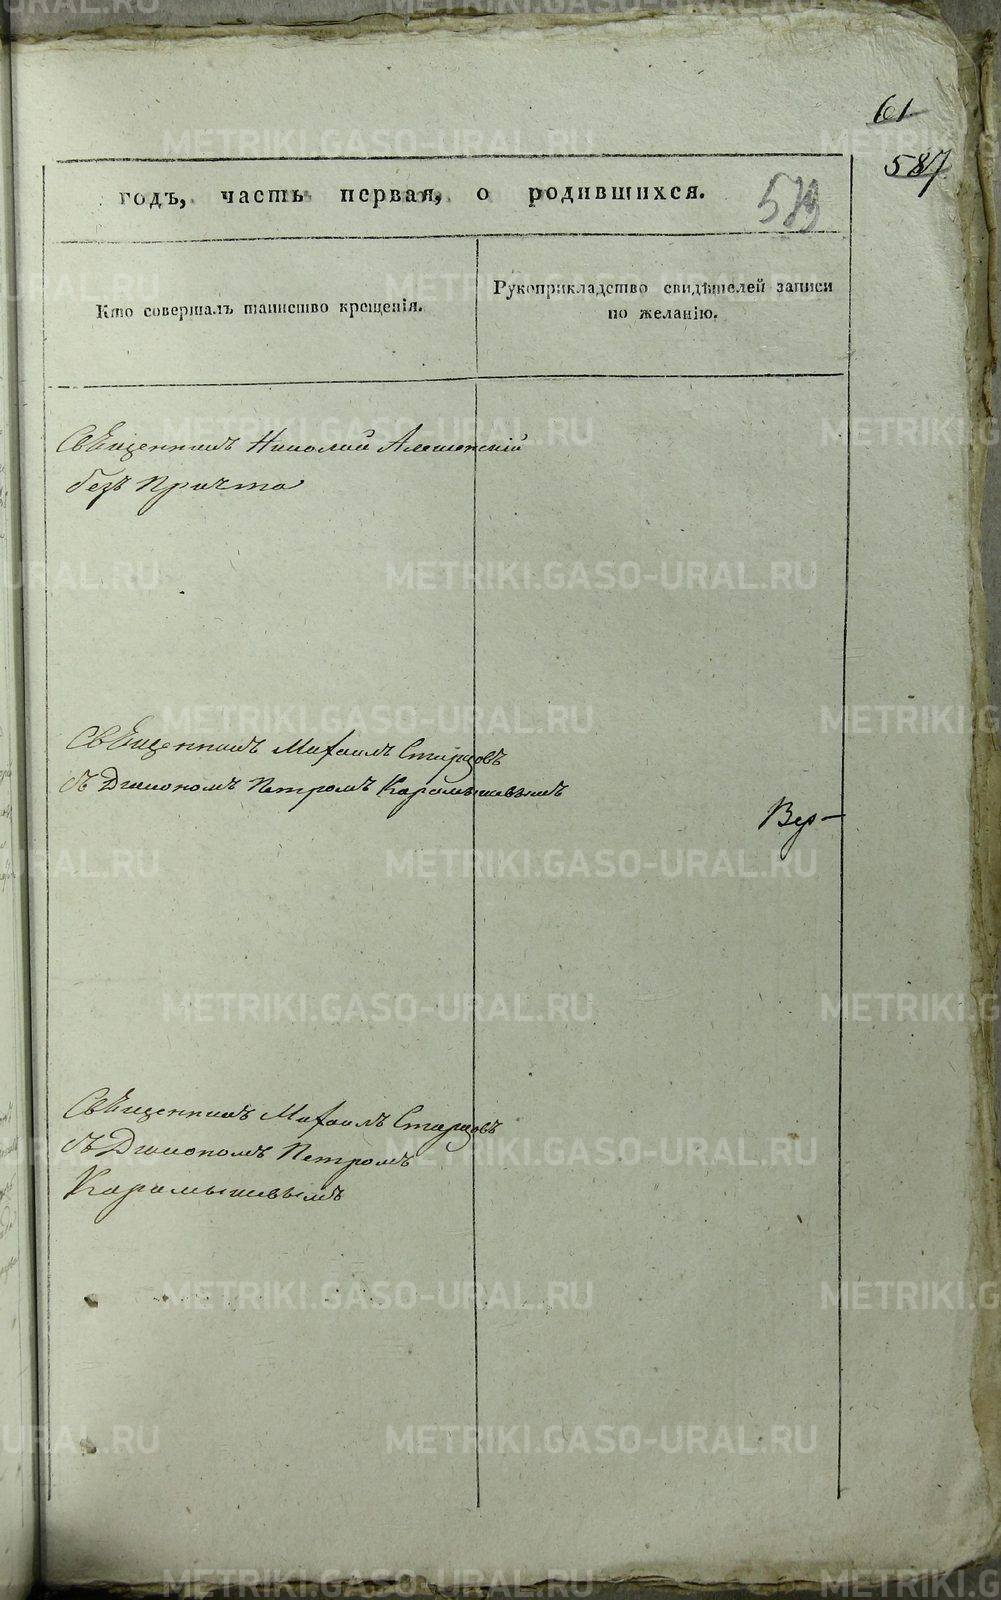 61
587
годъ, часть первая, о родившихся.
Кто совершалъ таинство крещенія.
Рукоприкладство свидѣтелей записи
по желанію.
Священникъ Николай
безъ причта
Священникъ Михаилъ Старцовъ
съ Дьякономъ Петромъ Карамышевымъ
Вер-
Священникъ Михаилъ Старцовъ
съ Дьякономъ Петромъ
Карамышевымъ
METRIKI.GASO-URAL.RU